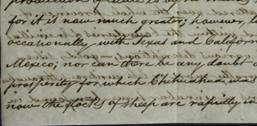 for it is now much greater, however,
occasionally, with Texas and Californ
Mexico; nor can there be any doubt
prosperity for which Chihuahua was
now the flocks of sheep are rapidly in